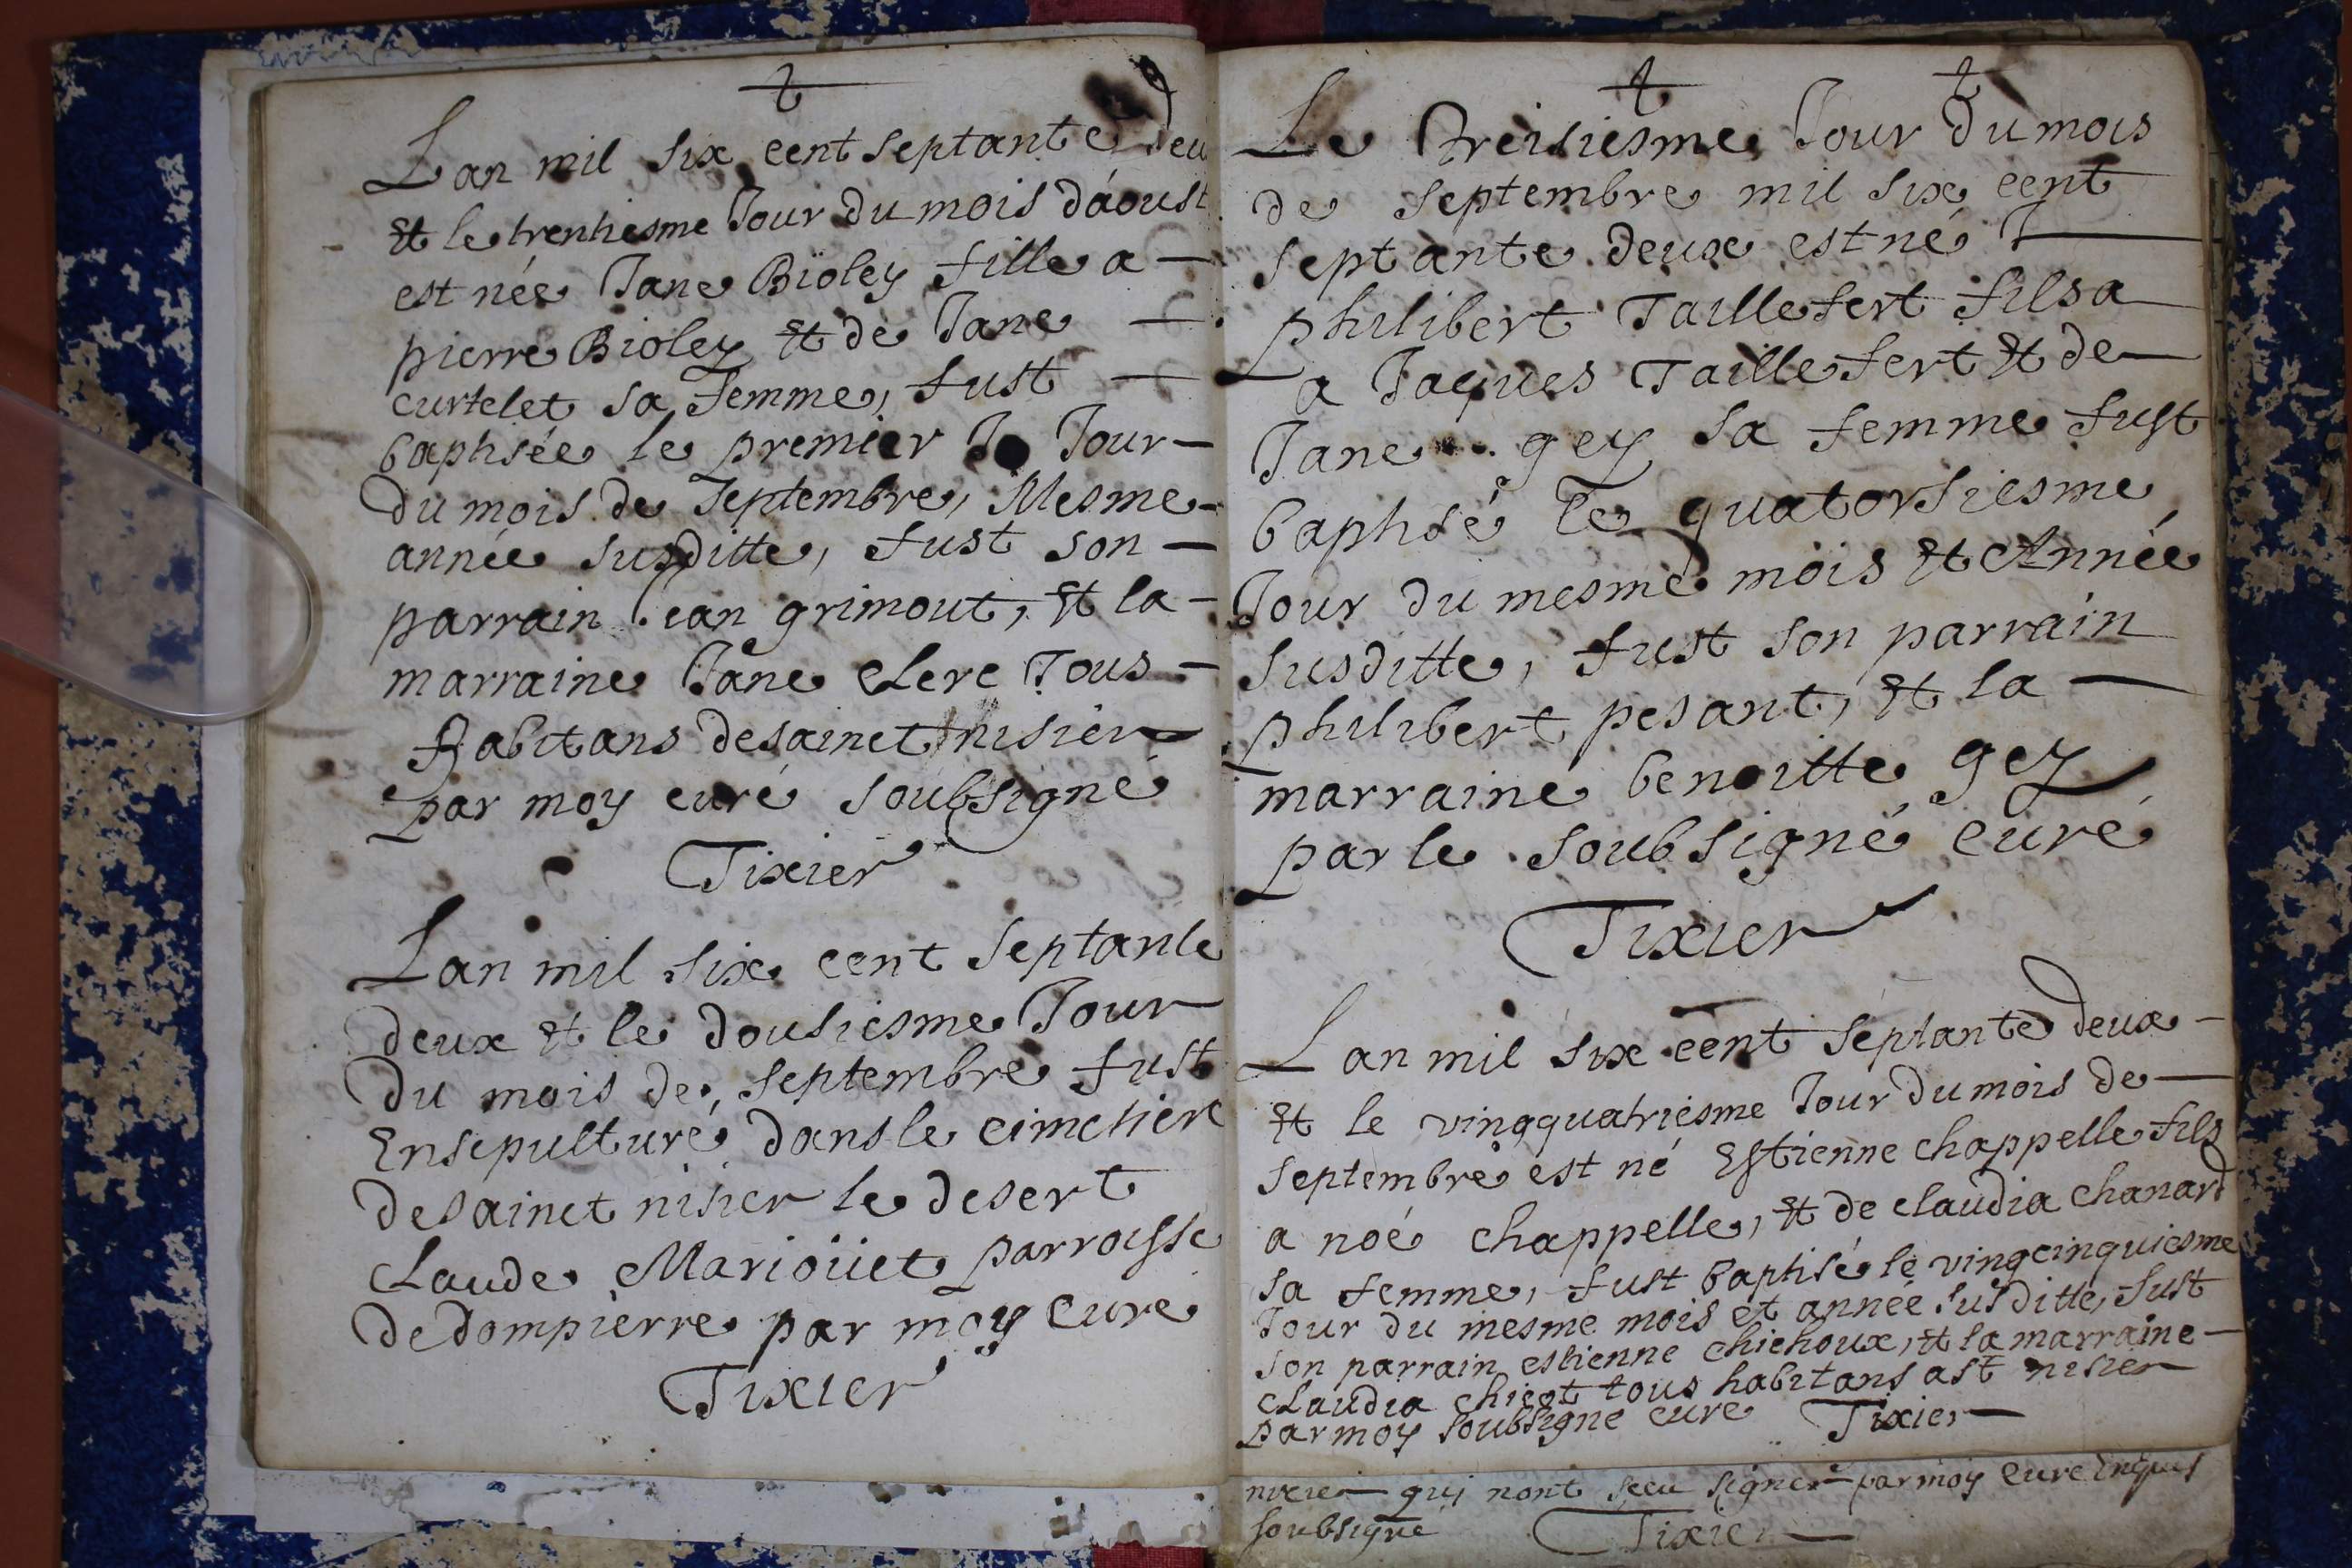 Lan mil six cent septante deu
et le trentiesme Jour du mois d'aoust
est née Jane Bioley fille a
pierre Bioley et de Jane
curtelet sa femme, fust
baptisée le premier Jo Jour
du mois de septembre, Mesme
année susditte, fust son
parrain Jean grimout, et la
marraine Jane clerc Tous
habitans de sainct nisier
par moy curé soubsigné
Tixier
Lan mil six cent septante
deux et le dousiesme Jour
du mois de septembre fust
Ensepulturé dans le cimetiere
de sainct nisier le desert
Claude Marioüet parroisse
de dompierre par moy cure
Tixier
Le Treisiesme Jour du mois
de septembre mil six cent
septante deux est né J
philibert Taillefert fils a
a Jaques Taillefert et de
Jane gey sa femme fust
baptisé le quatorsiesme
Jour du mesme mois et Année
susditte, fust son parrain
philibert pesant, et la
marraine benoitte gey
par le soubsigné curé
Tixier
Lan mil six cent septante deux
et le vingquatriesme Jour du mois de
septembre est né Estienne chappelle fils
a noé chappelle, et de claudia chanard
sa femme, fust baptisé le vingcinquiesme
Jour du mesme mois et année susditte, fust
son parrain estienne chichoux, et la marraine
claudia chicot tous habitans a st nisier
par moy soubsigne cure Tixier
nisier qui nont sceu signer par moy cure
soubsigné Tixier